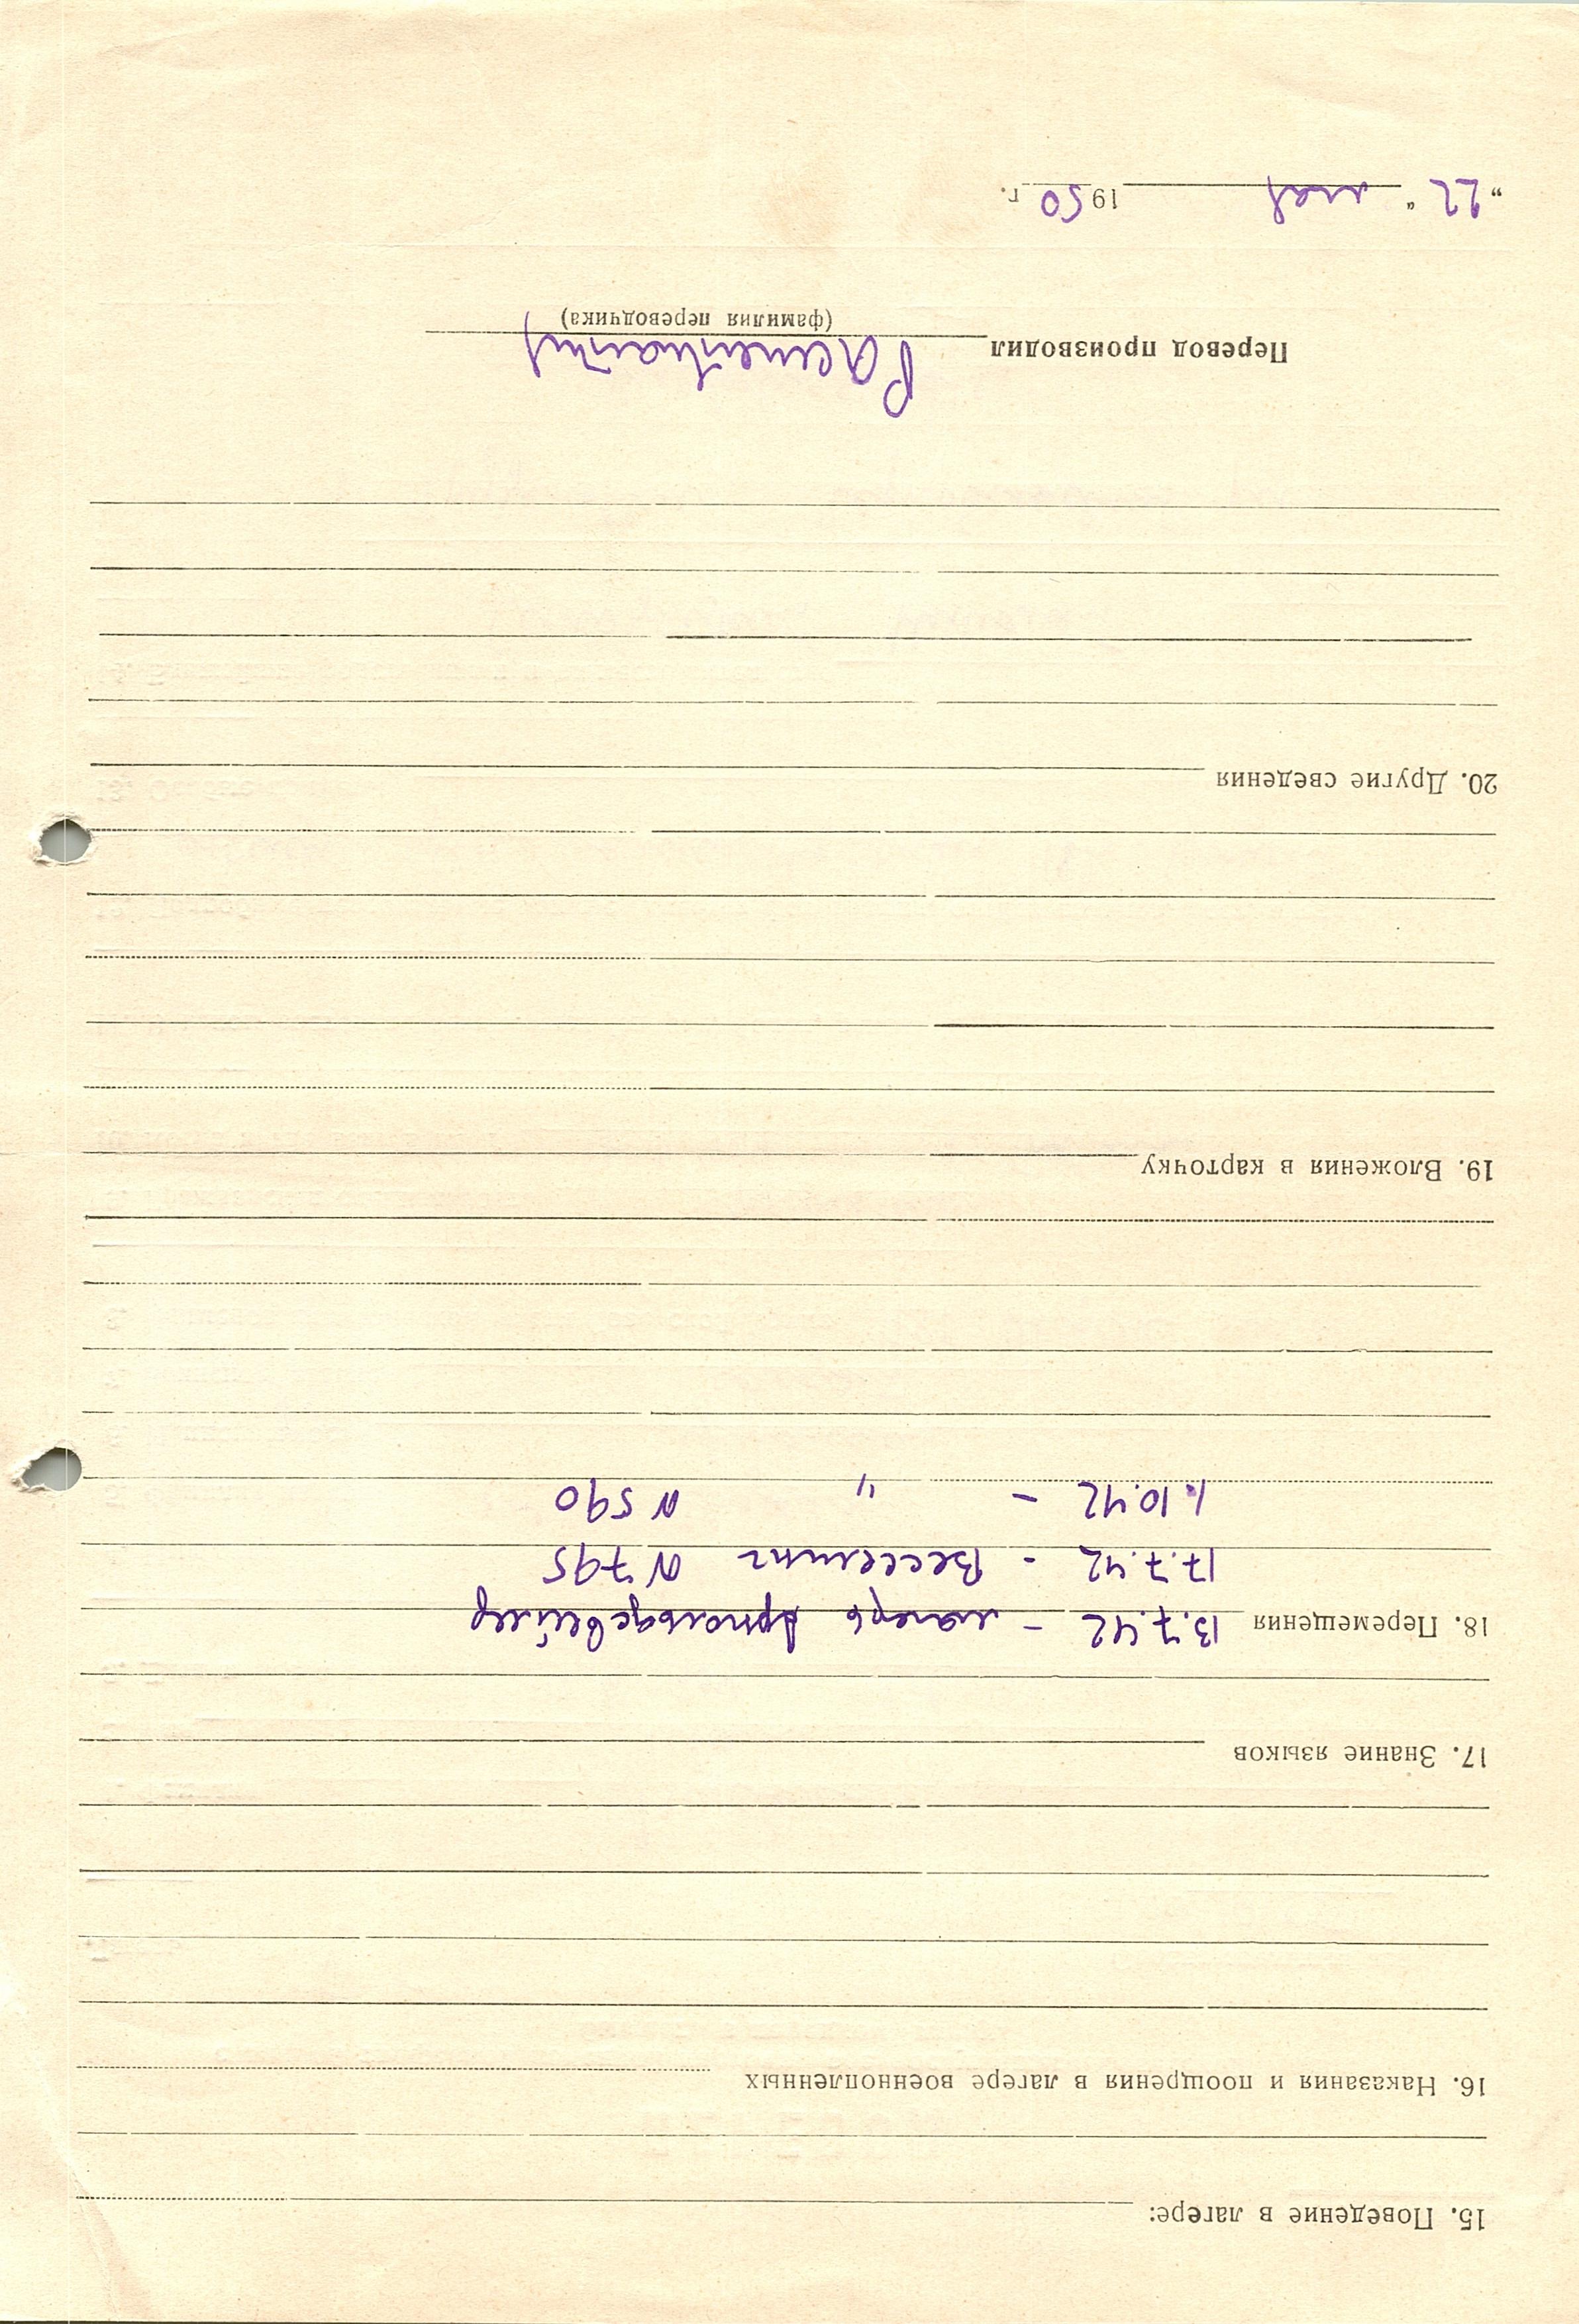 15. Поведение в лагере:
16. Наказания и поощрения в лагере военнопленных
17. Знание языков
18. Перемещения 13.7.42 – лагерь Арнольдсвейлер
17.7.42 - Весселинг N 795
1.10.42 – " N 590
19. Вложения в карточку
20. Другие сведения
Перевод производил
(фамилия переводчика)
„22" мая 1950 г.